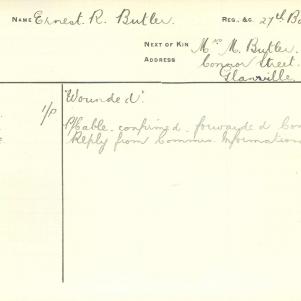 NAME Ernest R. Butler. REG. & C. 27th
NEXT OF KIN Mrs M. Butler.
ADDRESS Connor Street.
Glanville
'Wounded'.
1/P P/Cable. confirmed. forwarded
Reply from Commun. Information